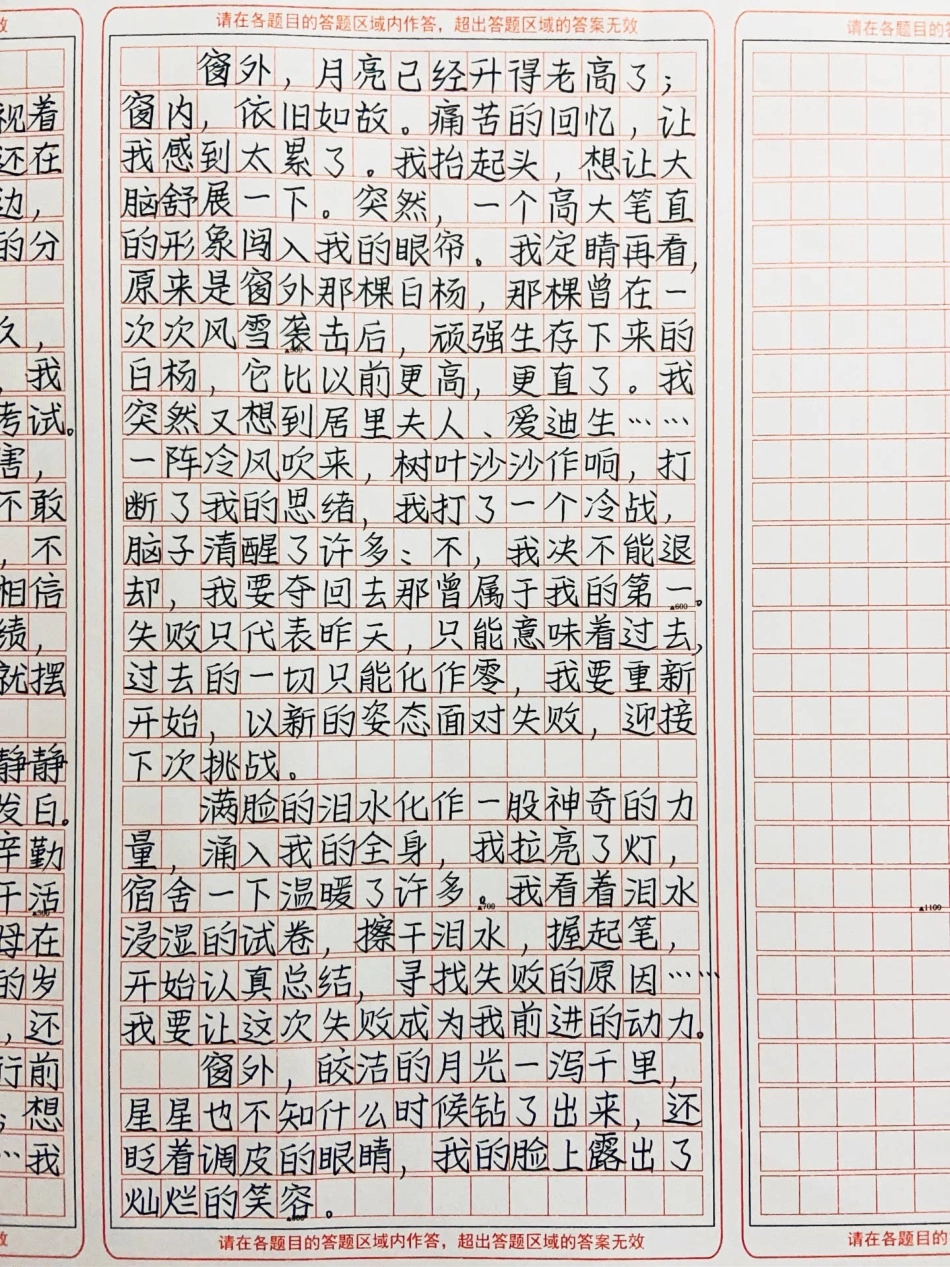 请在各题目的答题区域内作答，超出答题区域的答案无效
窗外，月亮已经升得老高了；
窗内，依旧如故。痛苦的回忆，让
我感到太累了。我抬起头，想让大
脑舒展一下。突然，一个高大笔直
的形象闯入我的眼帘。我定睛再看，
原来是窗外那棵白杨，那棵曾在一
次次风雪袭击后，顽强生存下来的
白杨，它比以前更高，更直了。我
突然又想到居里夫人、爱迪生……
一阵冷风吹来，树叶沙沙作响，打
断了我的思绪，我打了一个冷战，
脑子清醒了许多：不，我决不能退
却，我要夺回去那曾属于我的第一。
▲600
失败只代表昨天，只能意味着过去，
过去的一切只能化作零，我要重新
开始，以新的姿态面对失败，迎接
下次挑战。
满脸的泪水化作一股神奇的力
量，涌入我的全身，我拉亮了灯，
宿舍一下温暖了许多。我看着泪水
▲700
浸湿的试卷，擦干泪水，握起笔，
开始认真总结，寻找失败的原因……
我要让这次失败成为我前进的动力。
窗外，皎洁的月光一泻千里，
星星也不知什么时候钻了出来，还
眨着调皮的眼睛，我的脸上露出了
灿烂的笑容。
请在各题目的答题区域内作答，超出答题区域的答案无效
效
视着
还在
边，
的分
久，
，我
考试。
害，
不敢
，不
相信
绩，
就摆
静静
发白。
辛勤
干活
母在
的岁
，还
行前
，想
…我
效
请在各题目的
▲1100
请在各题目的